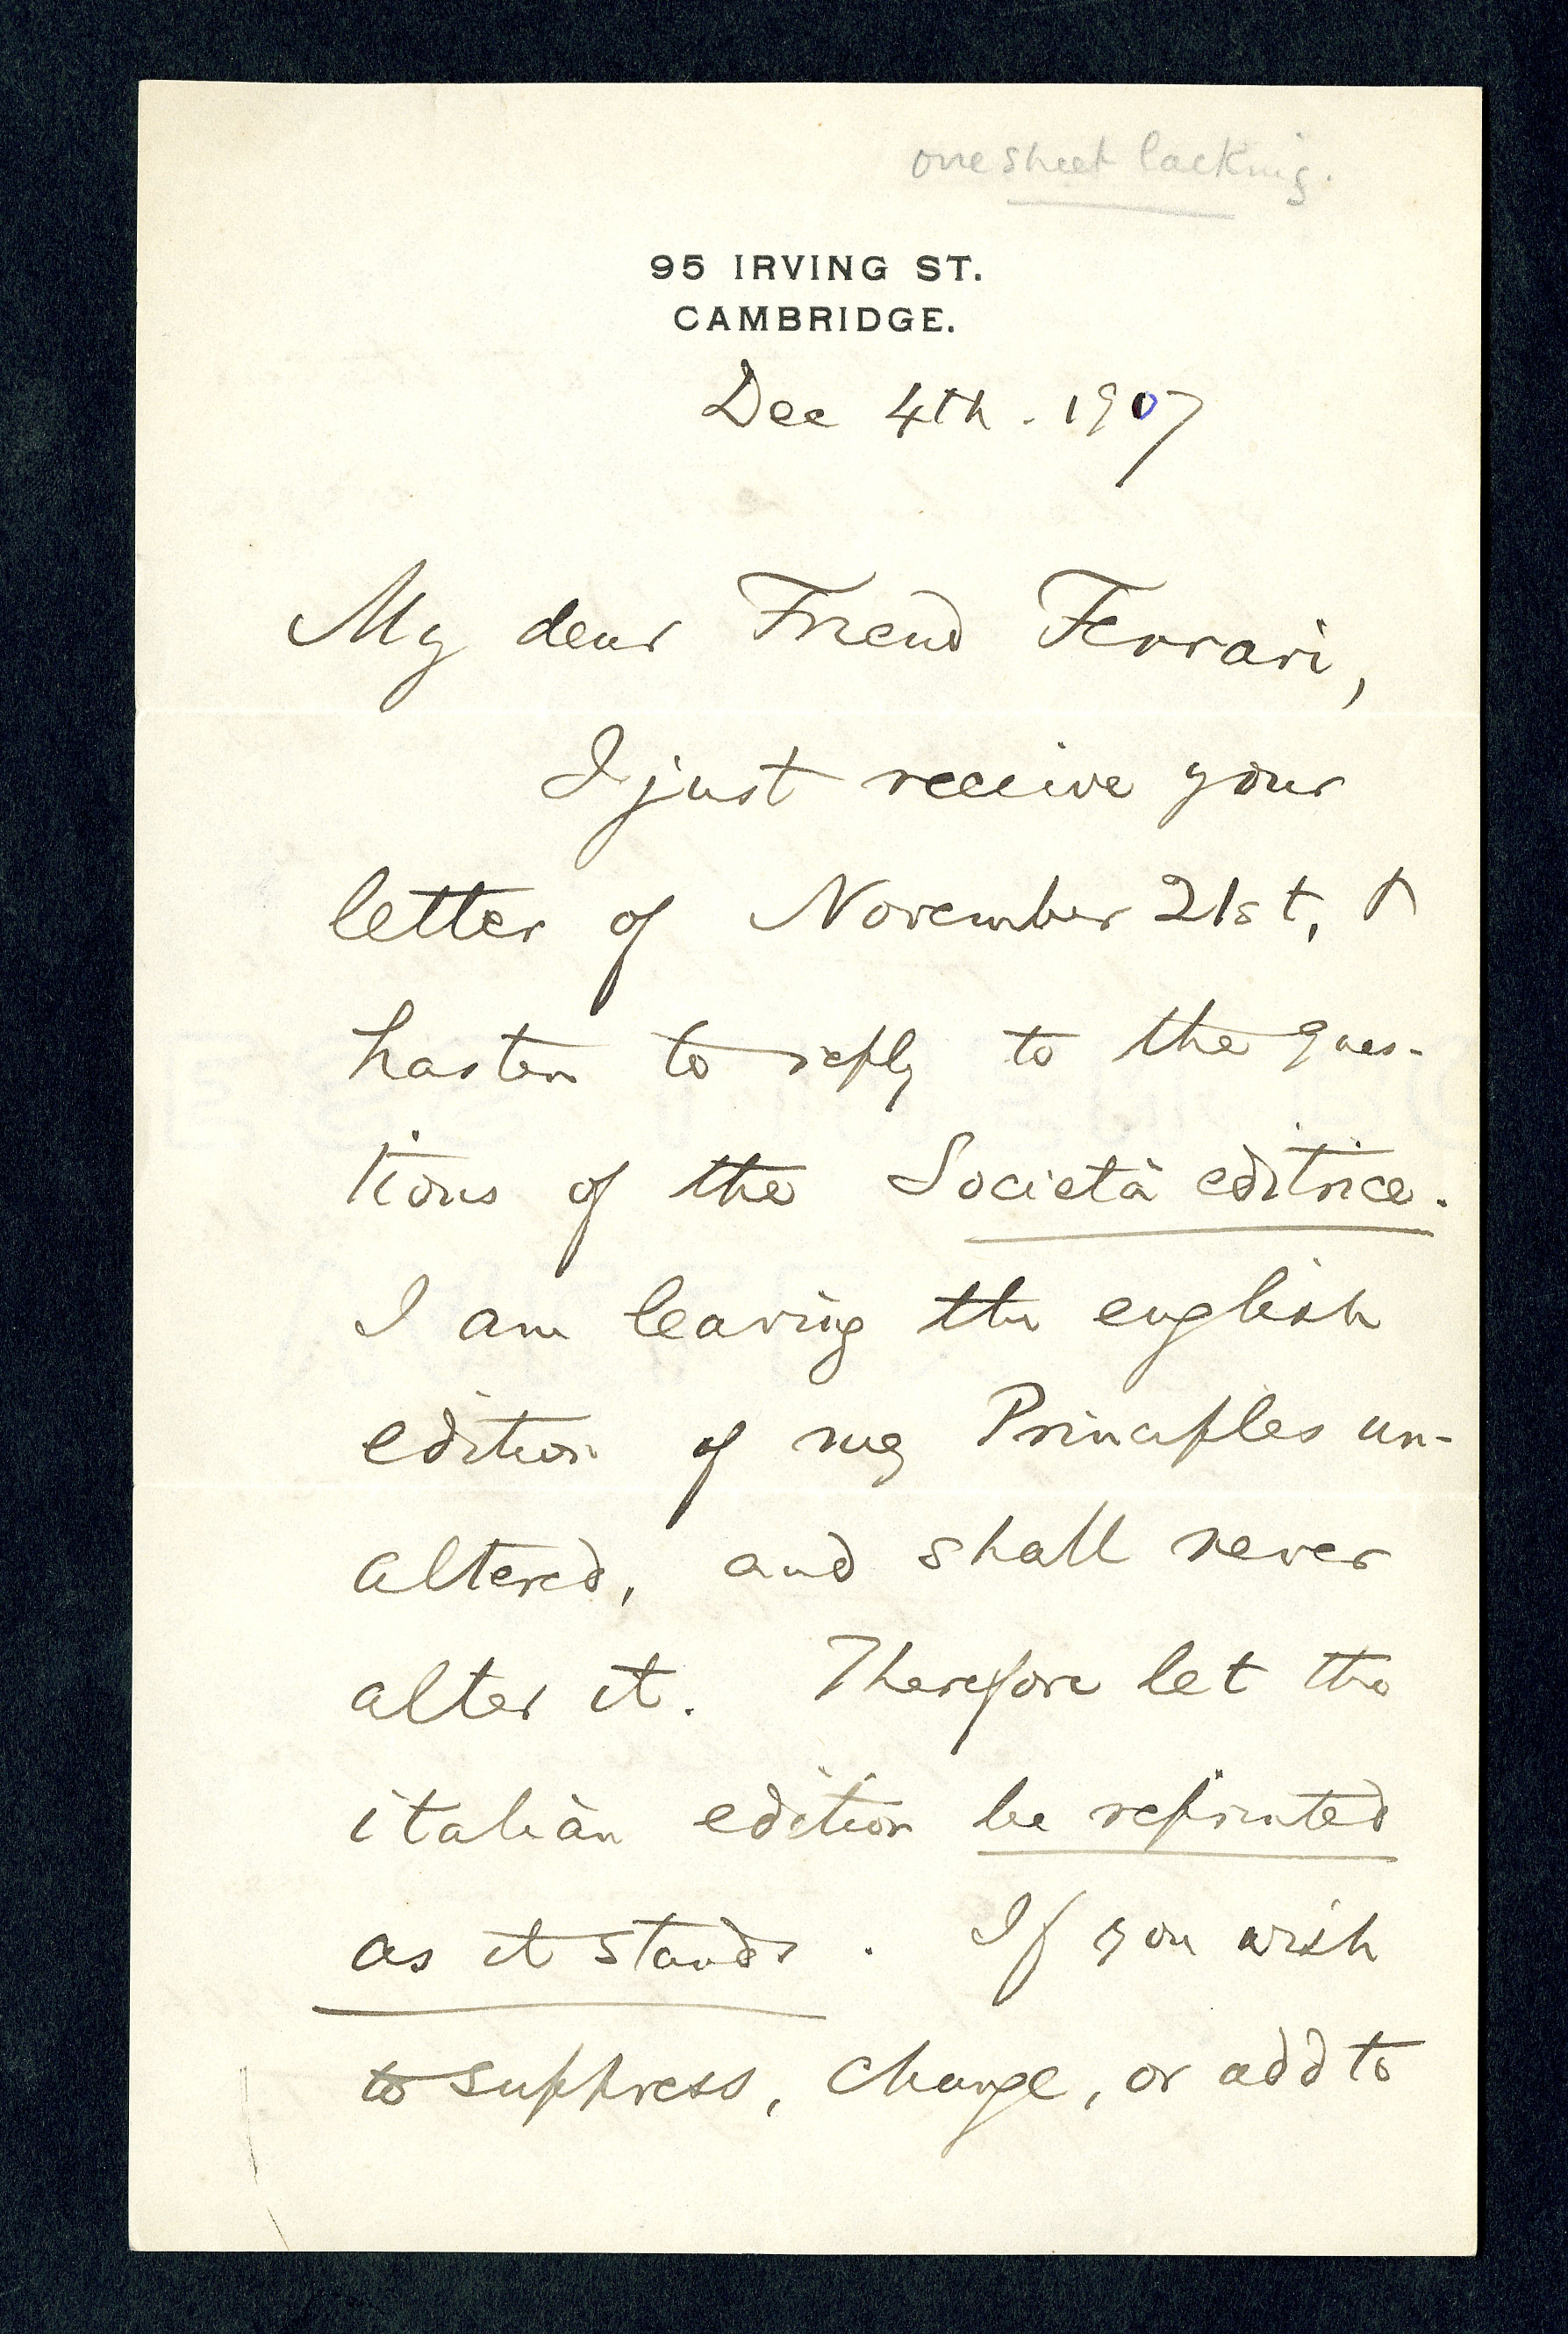 one sheet lacking.
95 IRVING ST.
CAMBRIDGE.
Dec 4th. 1907
My dear Friend Ferrari,
I just receive your
letter of November 21st, &
hasten to reply to the ques-
tions of the Società editrice.
I am leaving the english
edition of my Principles un-
altered, and shall never
alter it. Therefore let the
italian edition be reprinted
as it stands. If you wish
to suppress, change, or add to